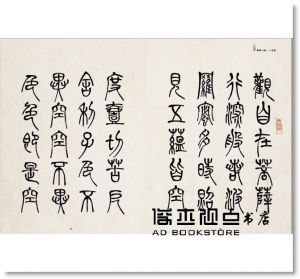 觀自在菩薩
行深般若波
羅蜜多時照
見五蘊皆空
度壹切苦厄
舍利子色不
異空空不異
色色即是空
书店
AD BOOKSTORE